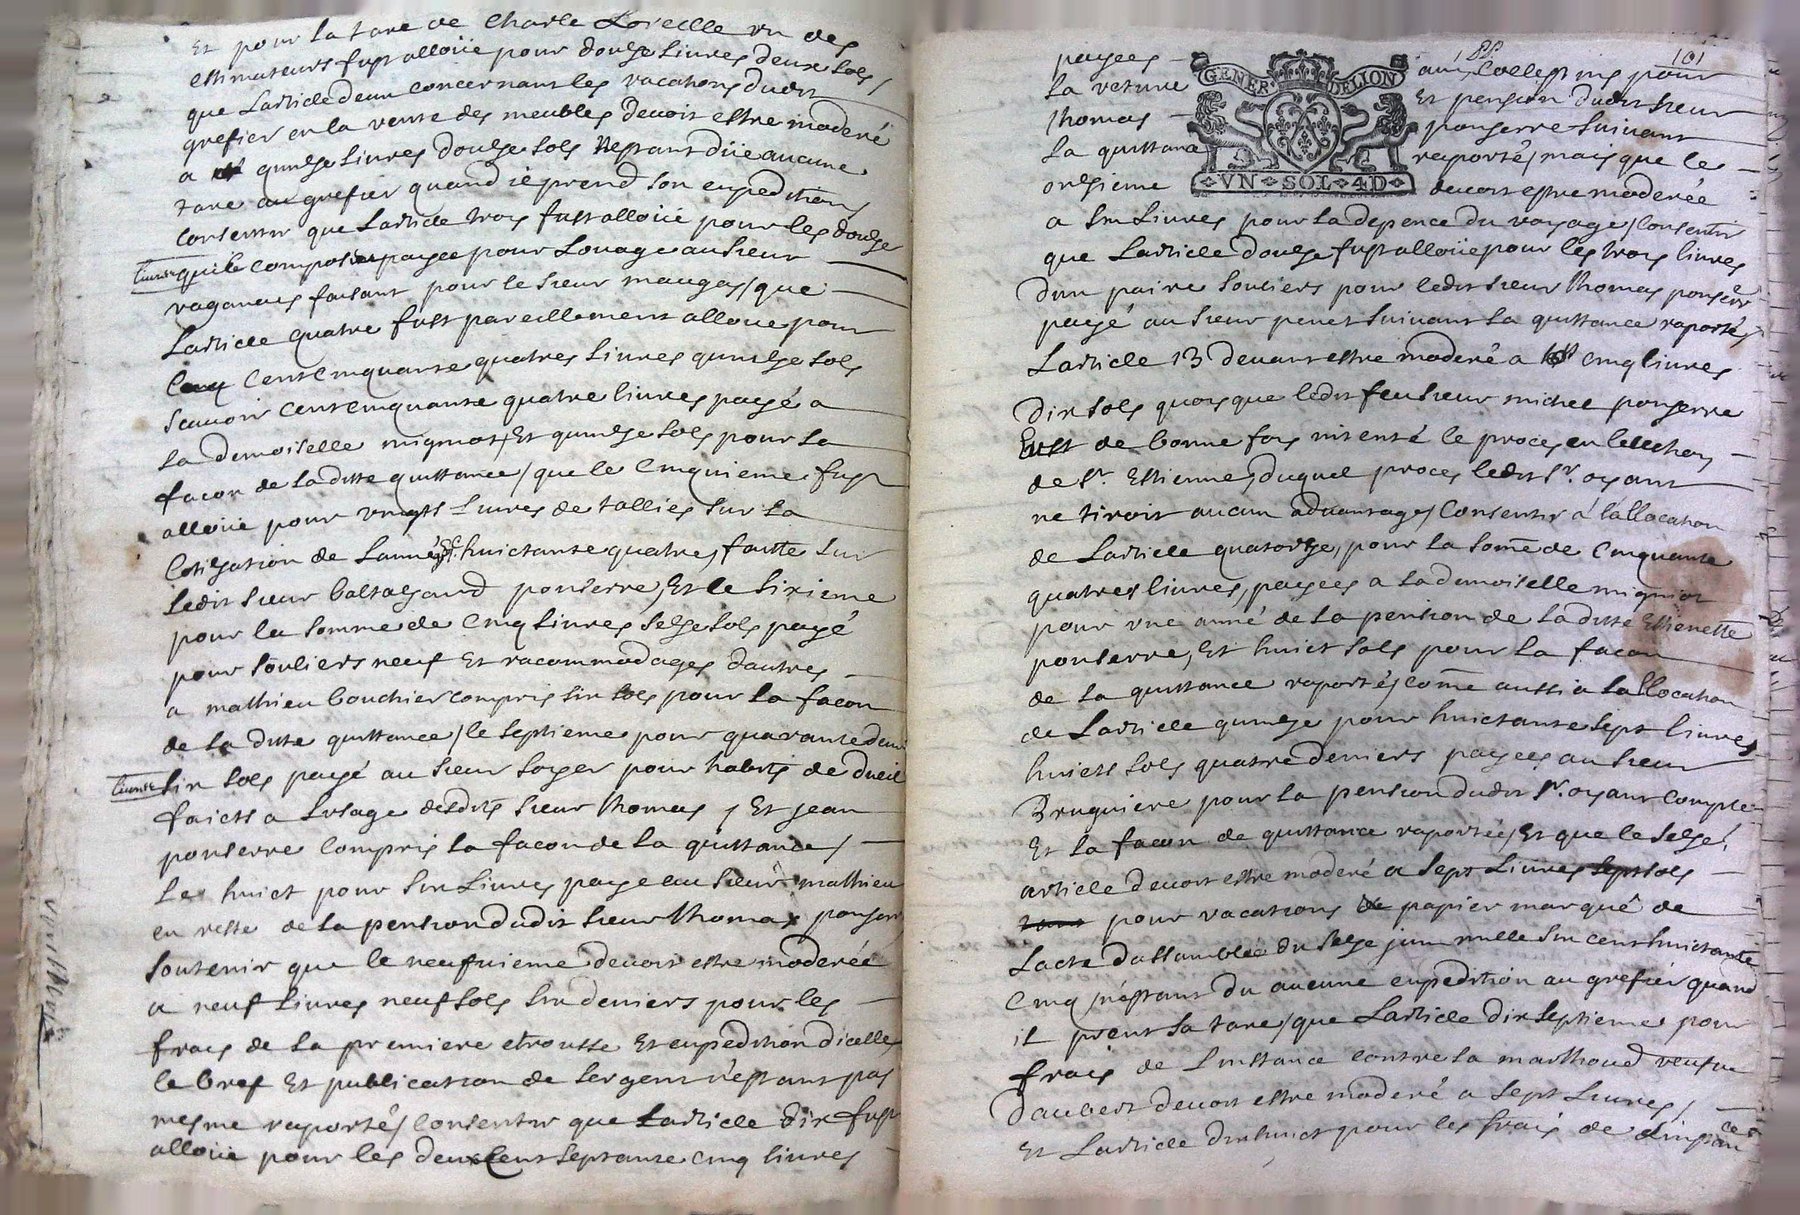 Et pour la taxe de Charle Loreille un des
estimateurs fust alloüé pour doulze livres deux sols /
que L'article deux concernant les vacations dudit
grefier en la vente des meubles devoit estre moderé
a quinze livres doulze sols N'estant düe aucune
taxe au grefier quand il prend son expedition /
consentir que L'article trois fust alloüé pour les doulze
livres qu'il compose payée pour Louage au sieur
faisant pour le sieur maugas / que
L'article quatre fust pareillement alloué pour
Cent cinquante quatres livres quinze sols
scavoir cent cinquante quatre livres payé a
la demoiselle mignot, Et quinze sols pour la
facon de la ditte quittance / que le cinquieme fust
alloüé pour vingts livres de tallies sur la
Cotisation de L'année huictante quatre, faitte sur
ledit sieur baltasard ponserre, Et le sixieme
pour la somme de cinq livres seize sols payé
pour souliers neuf Et racommodages d'autres
a mathieu bouchier compris six sols pour la facon
de la ditte quittance / le septieme pour quarante deux
livres six sols payé au sieur soyer pour habits de dueil
faicts a l'usage desdits sieur thomas, Et jean
ponserre compris la facon de la quittance /
Le huict pour six Livres payé au sieur mathieu
en reste de la pension dudit sieur thomas ponserre
soutenir que le neufvieme devoit estre moderée
a neuf livres neuf sols six deniers pour les
frais de la premiere etrousse Et expedition d'icelle
le bref Et publication de sergent n'estant pas
mesme raporté / consentir que L'article dix fust
alloüé pour les deux Cent septante cinq livres
101
GENER DELION
VN SOL 4D
payées aux Celestins pour
la veture Et pension dudit sieur
thomas ponserre suivant
la quittance raporté, mais que le
onzieme devoit estre moderée
a six livres pour la depence du voyage / consentir
que L'article doulze fust alloüé pour les trois livres
d'un paire souliers pour ledit sieur thomas ponserre
payé au sieur penet suivant la quittance raporté
L'article 13 devant estre moderé a cinq livres
dix sols quoyque ledit feu sieur michel ponserre
Eust de bonne foy intenté le proces en l'election
de St. Estienne, duquel proces ledit Sr. oyant
ne tiroit aucun advantage / consentir a l'allocation
de L'article quatorze, pour la some de cinquante
quatres livres, payées a la demoiselle mignot
pour une anné de la pension de la ditte Estienette
ponserre, Et huict sols pour la facon
de la quittance raporté / come aussi a l'allocation
de L'article quinze pour huictante sept livres
huicts sols quatre deniers payées au sieur
Bruguiere pour la pension dudit Sr. oyant compte
Et la facon de quittance raportée / Et que le seize
article devoit estre moderé a sept Livres sept sols
pour vacations de papier marqué de
L'acte d'assamblée du seize juin mille six cent huictante
Cinq / n'estant du aucune expedition au grefier quand
il prent sa taxe / que L'article dix septieme pour
frais de L'instance contre la marthoud veufve
daubert devoit estre moderé a sept Livres /
Et L'article dixhuict pour les frais de l'instance